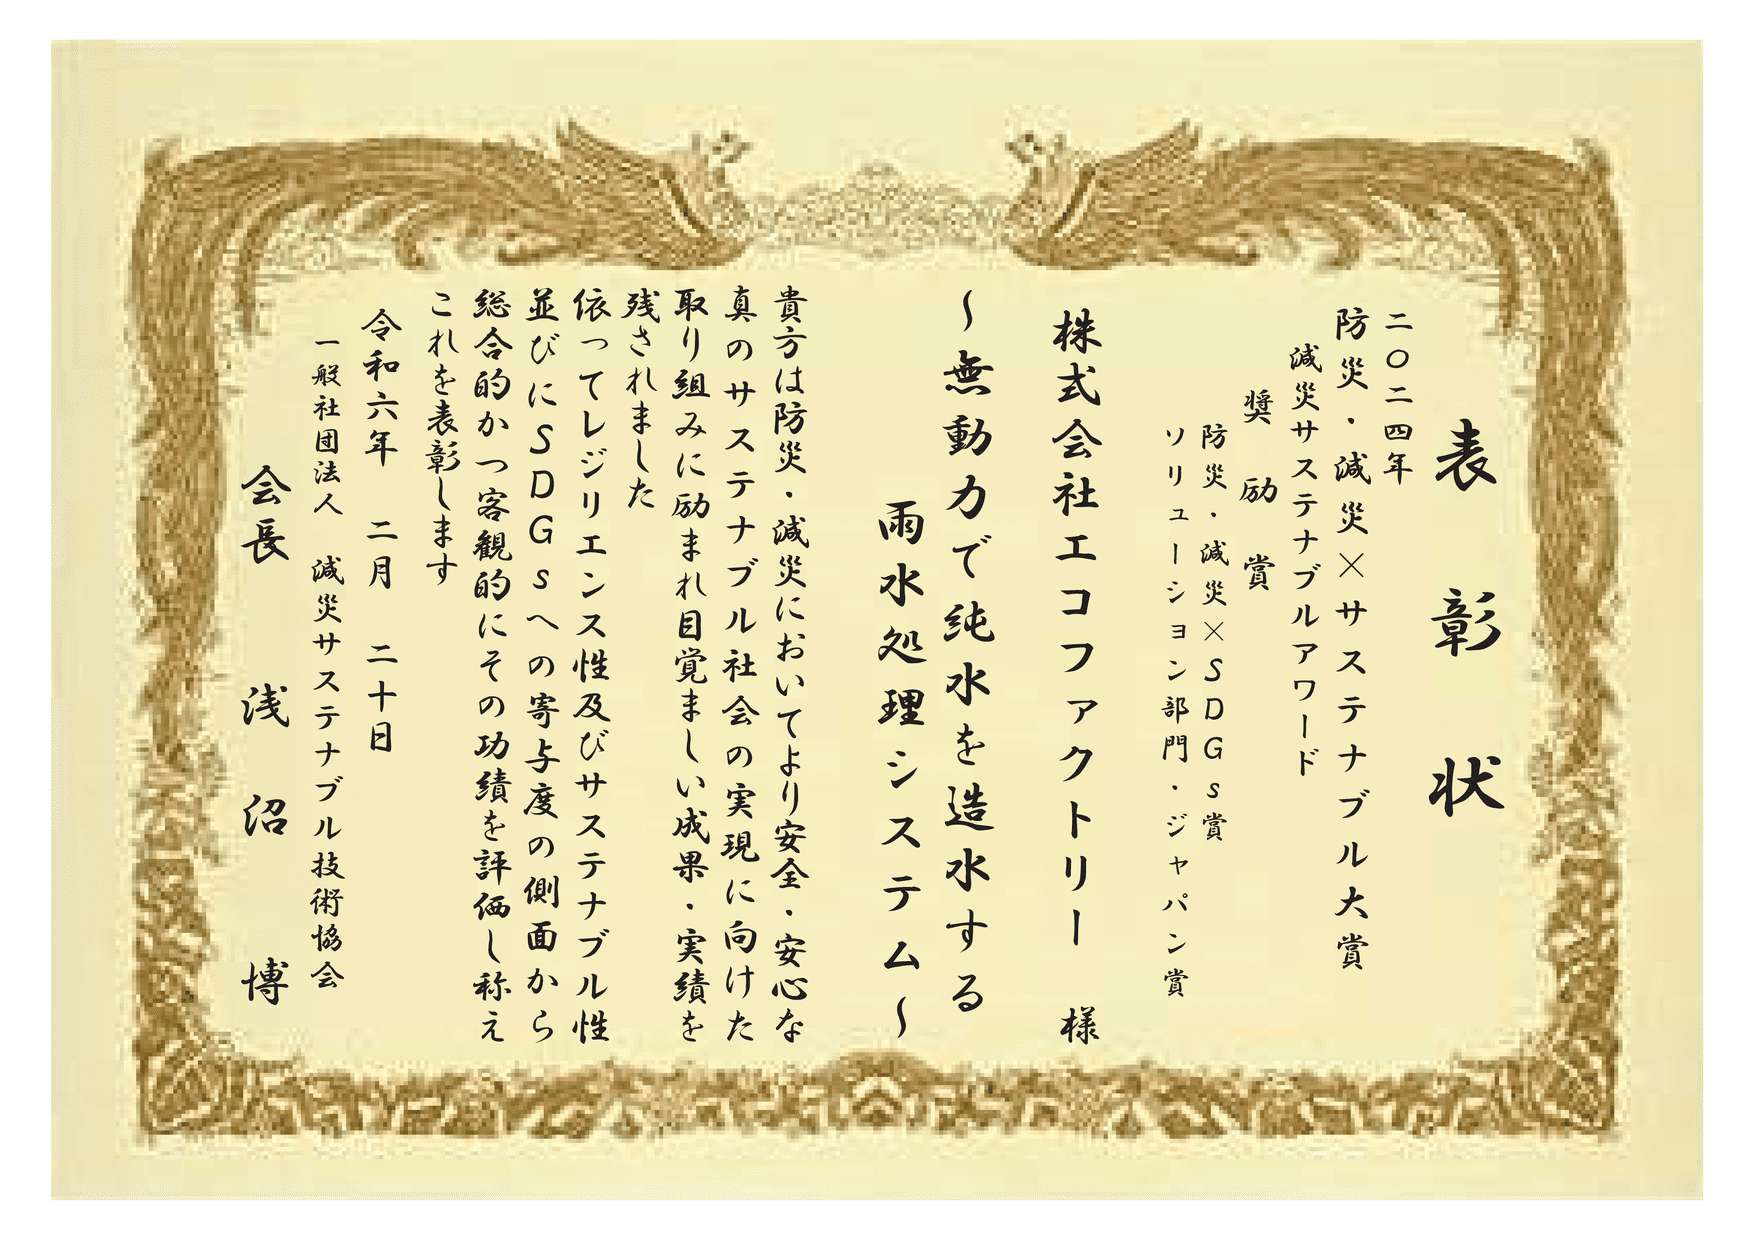 表彰状
二〇二四年
防災・減災×サステナブル大賞
減災サステナブルアワード
奨励賞
防災・減災×SDGs賞
ソリューション部門・ジャパン賞
株式会社エコファクトリー 様
〜無動力で純水を造水する
雨水処理システム〜
貴方は防災・減災においてより安全・安心な
真のサステナブル社会の実現に向けた
取り組みに励まれ目覚ましい成果・実績を
残されました
依ってレジリエンス性及びサステナブル性
並びにSDGsへの寄与度の側面から
総合的かつ客観的にその功績を評価し称え
これを表彰します
令和六年 二月 二十日
一般社団法人 減災サステナブル技術協会
会長 浅沼 博